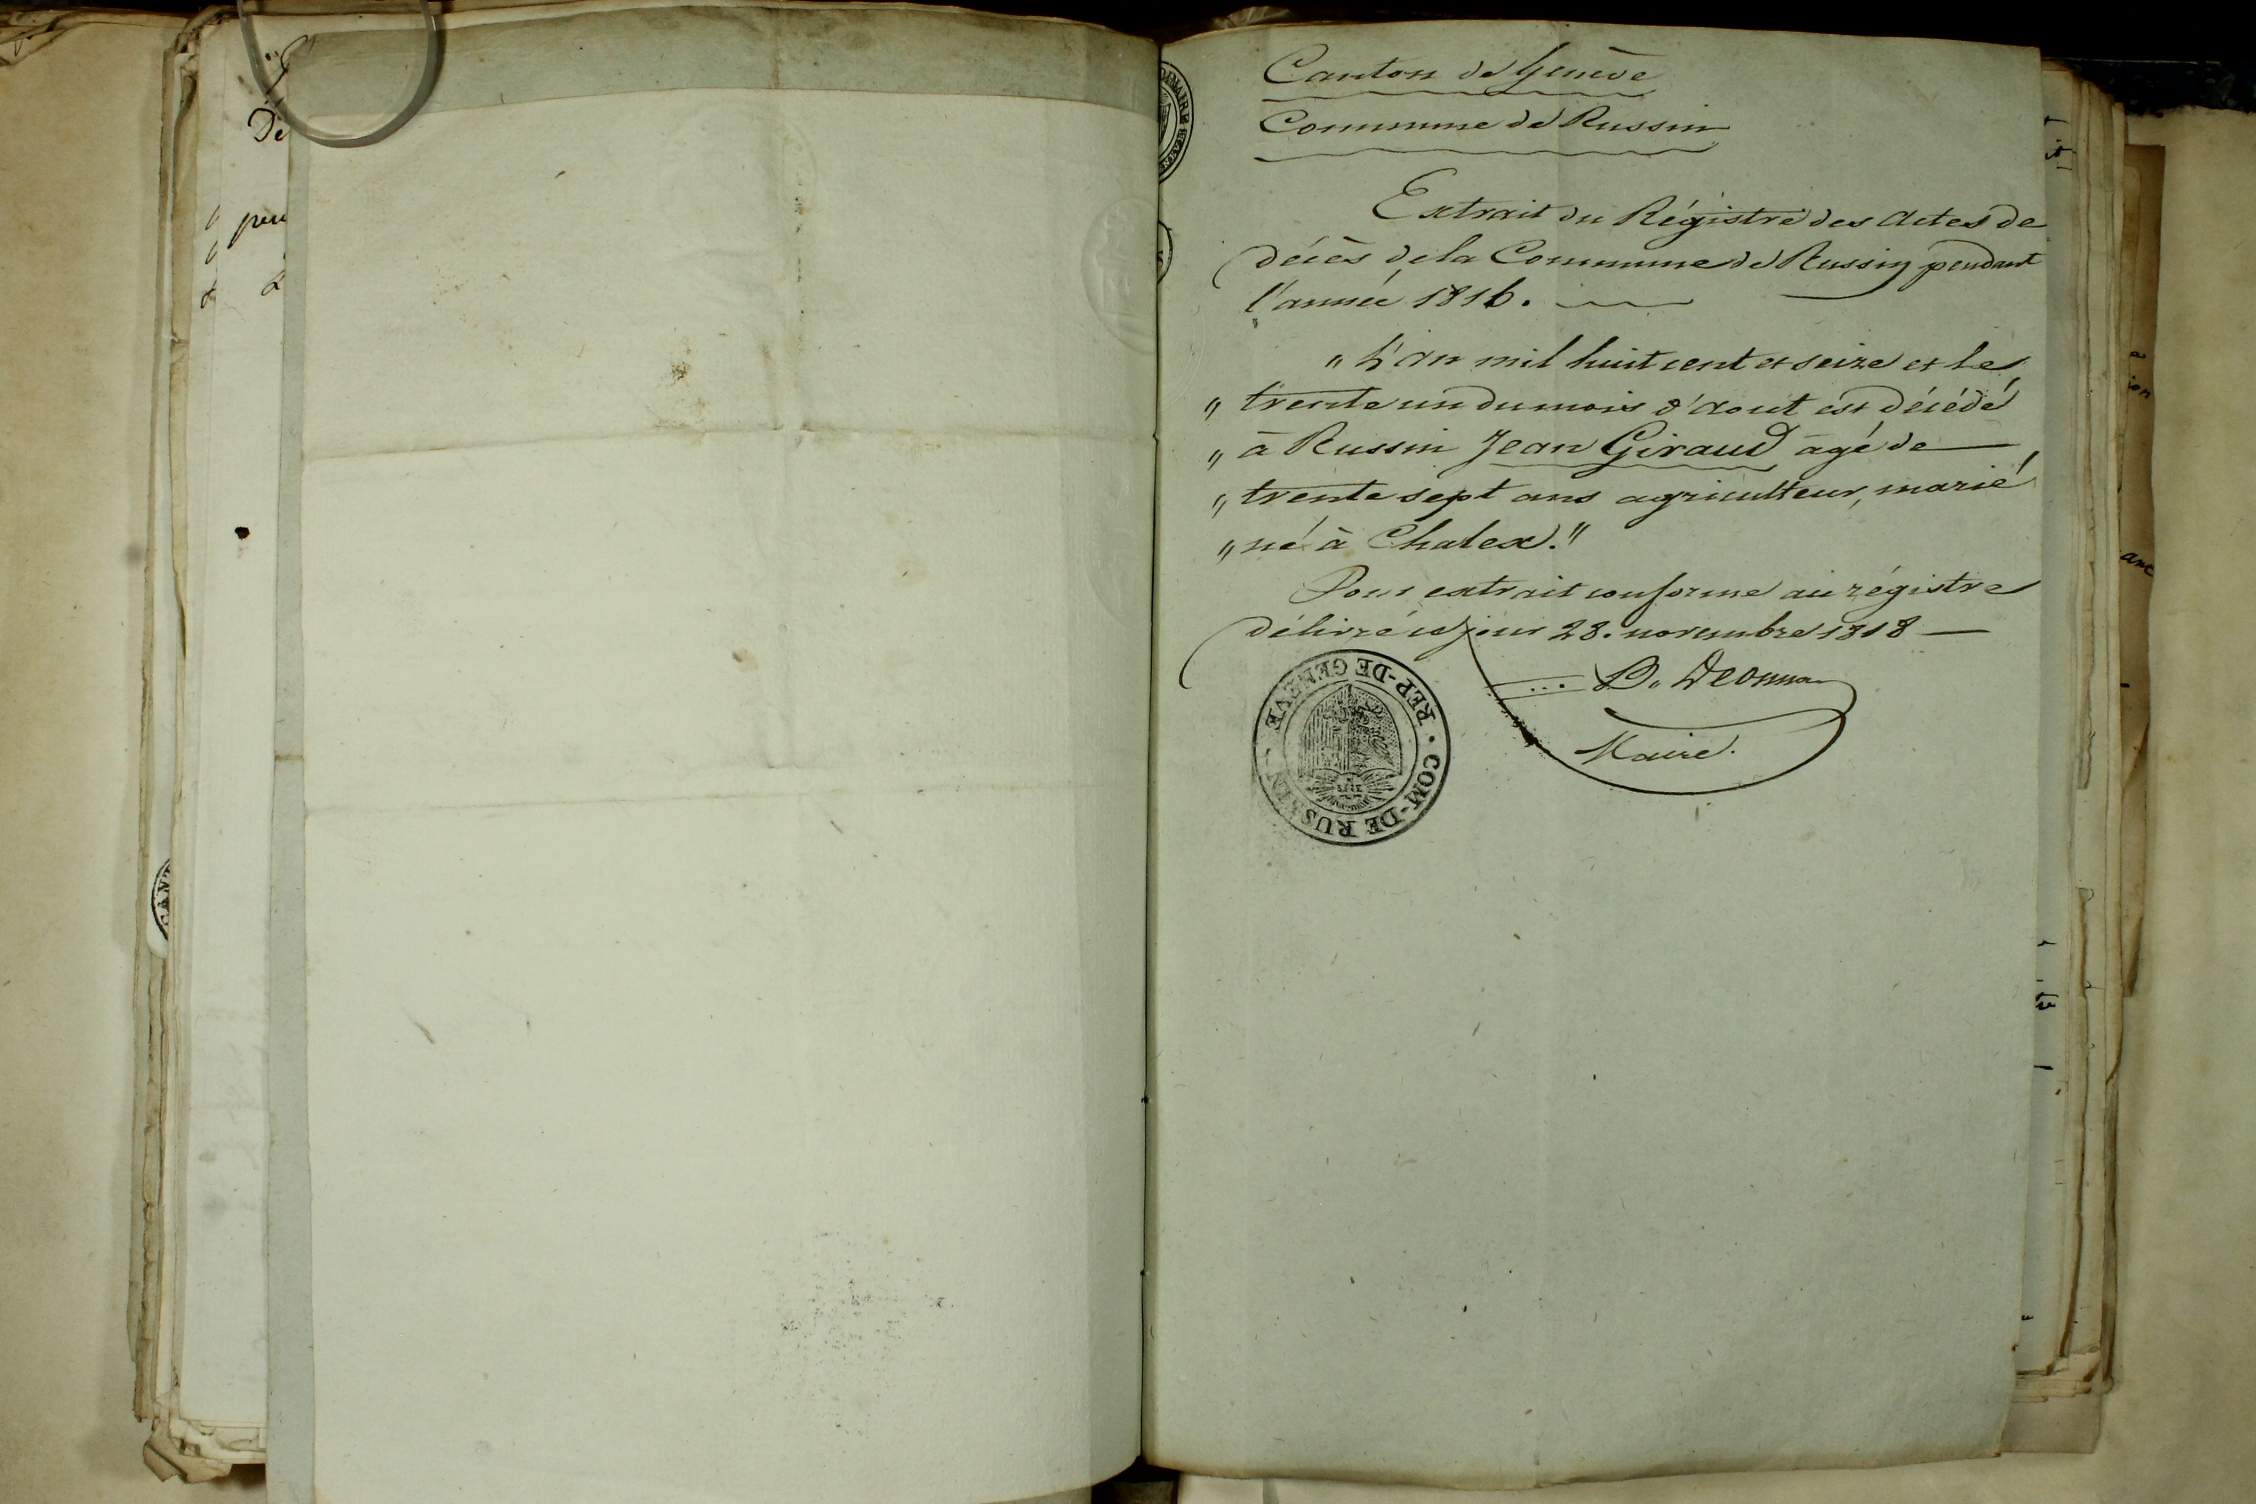 De
peu
Canton de Genève
Commune de Russin
Extrait du Régistre des Actes de
décès de la Commune de Russin pendant
l'année 1816.
„ L'an mil huit cent et seize et le
„ trente un du mois d'Aout est décédé
„ à Russin Jean Giraud agé de
„ trente sept ans agriculteur, marié
„ né à Chalex."
Pour extrait conforme au régistre
délivré ce jour 28. novembre 1818
D. Deonna
Maire.
REP-DE GENEVE • COM-DE RUSSIN
CANT
anc